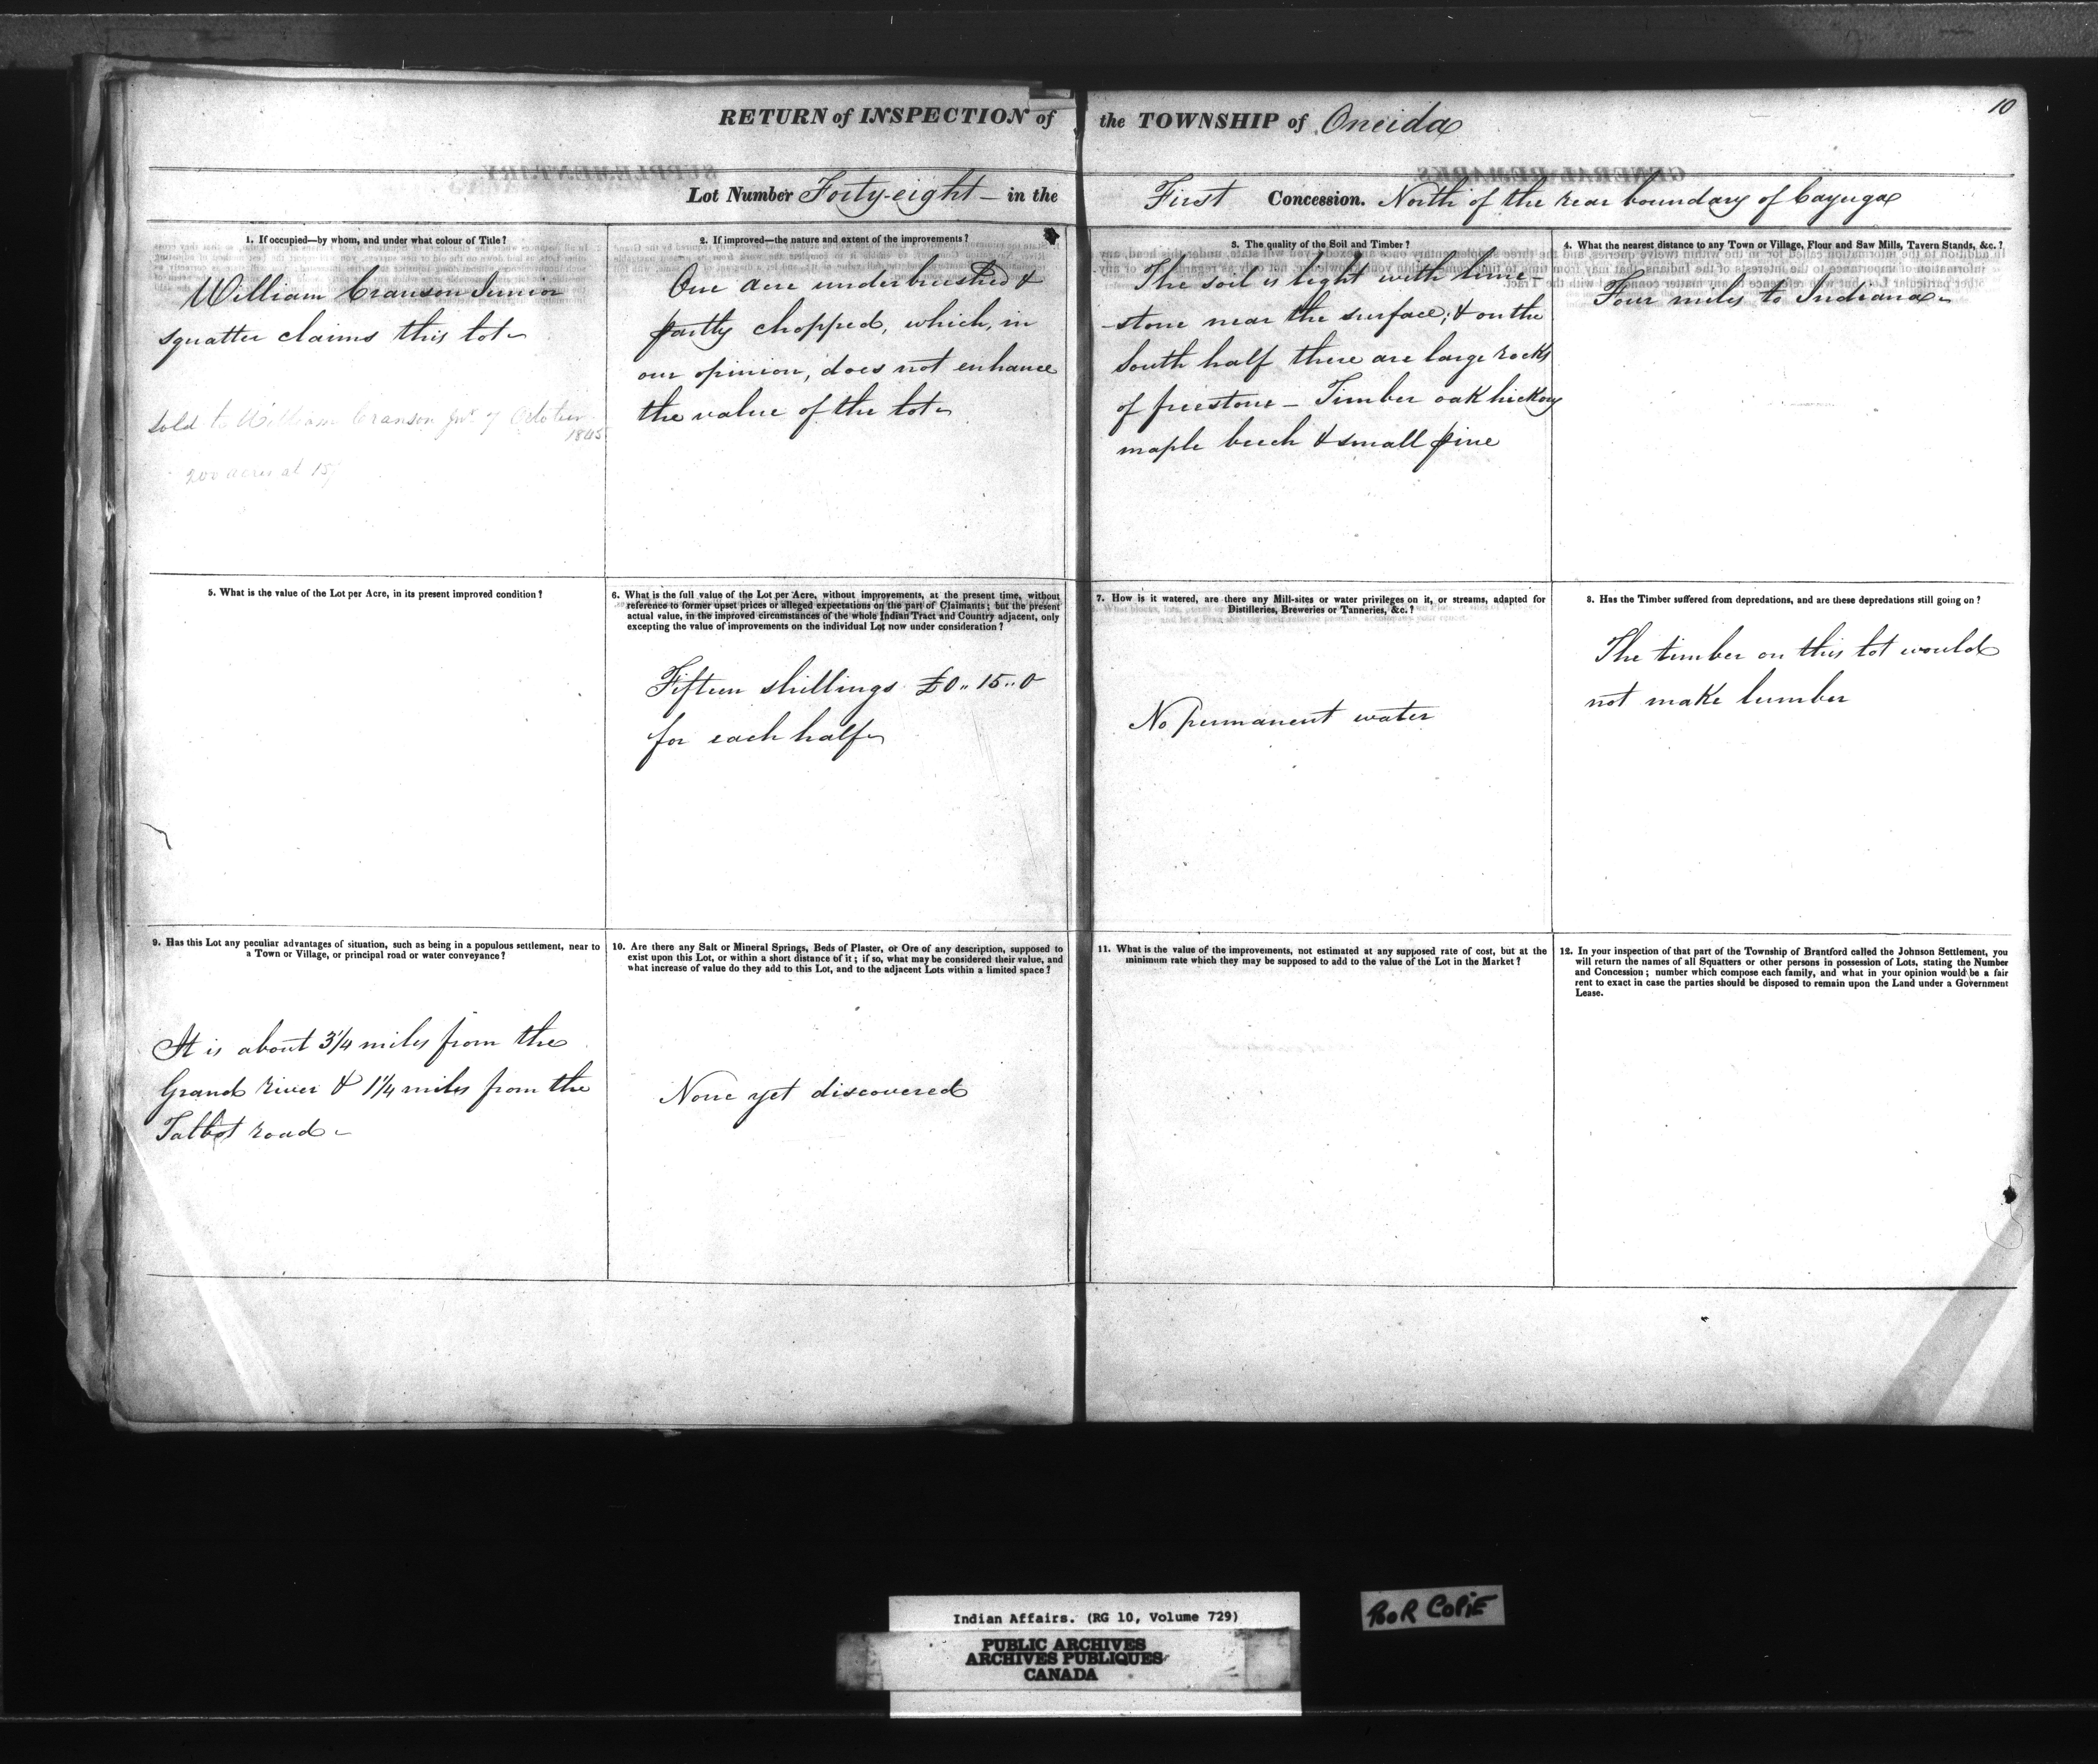 10
RETURN of INSPECTION of the TOWNSHIP of Oneida
Lot Number Forty-eight — in the First Concession. North of the rear boundary of Cayuga
1. If occupied—by whom, and under what colour of Title?
William Cranson Junior
squatter claims this lot
sold to William Cranson Junr 7 October
1845
200 acres at 15/
2. If improved—the nature and extent of the improvements?
One acre underbrushed &
partly chopped, which, in
our opinion, does not enhance
the value of the lot
3. The quality of the Soil and Timber?
The soil is light with lime-
-stone near the surface; & on the
South half there are large rocks
of freestone — Timber oak hickory
maple beech & small pine
4. What the nearest distance to any Town or Village, Flour and Saw Mills, Tavern Stands, &c.?
Four miles to Indiana
5. What is the value of the Lot per Acre, in its present improved condition?
6. What is the full value of the Lot per Acre, without improvements, at the present time, without
reference to former upset prices or alleged expectations on the part of Claimants; but the present
actual value, in the improved circumstances of the whole Indian Tract and Country adjacent, only
excepting the value of improvements on the individual Lot now under consideration?
Fifteen shillings £0..15..0
for each half
7. How is it watered, are there any Mill-sites or water privileges on it, or streams, adapted for
Distilleries, Breweries or Tanneries, &c.?
No permanent water
8. Has the Timber suffered from depredations, and are these depredations still going on?
The timber on this lot would
not make lumber
9. Has this Lot any peculiar advantages of situation, such as being in a populous settlement, near to
a Town or Village, or principal road or water conveyance?
It is about 3 1/4 miles from the
Grand river & 1 1/4 miles from the
Talbot road
10. Are there any Salt or Mineral Springs, Beds of Plaster, or Ore of any description, supposed to
exist upon this Lot, or within a short distance of it; if so, what may be considered their value, and
what increase of value do they add to this Lot, and to the adjacent Lots within a limited space?
None yet discovered
11. What is the value of the improvements, not estimated at any supposed rate of cost, but at the
minimum rate which they may be supposed to add to the value of the Lot in the Market?
12. In your inspection of that part of the Township of Brantford called the Johnson Settlement, you
will return the names of all Squatters or other persons in possession of Lots, stating the Number
and Concession; number which compose each family, and what in your opinion would be a fair
rent to exact in case the parties should be disposed to remain upon the Land under a Government
Lease.
Indian Affairs. (RG 10, Volume 729)
PUBLIC ARCHIVES
ARCHIVES PUBLIQUES
CANADA
POOR COPIE